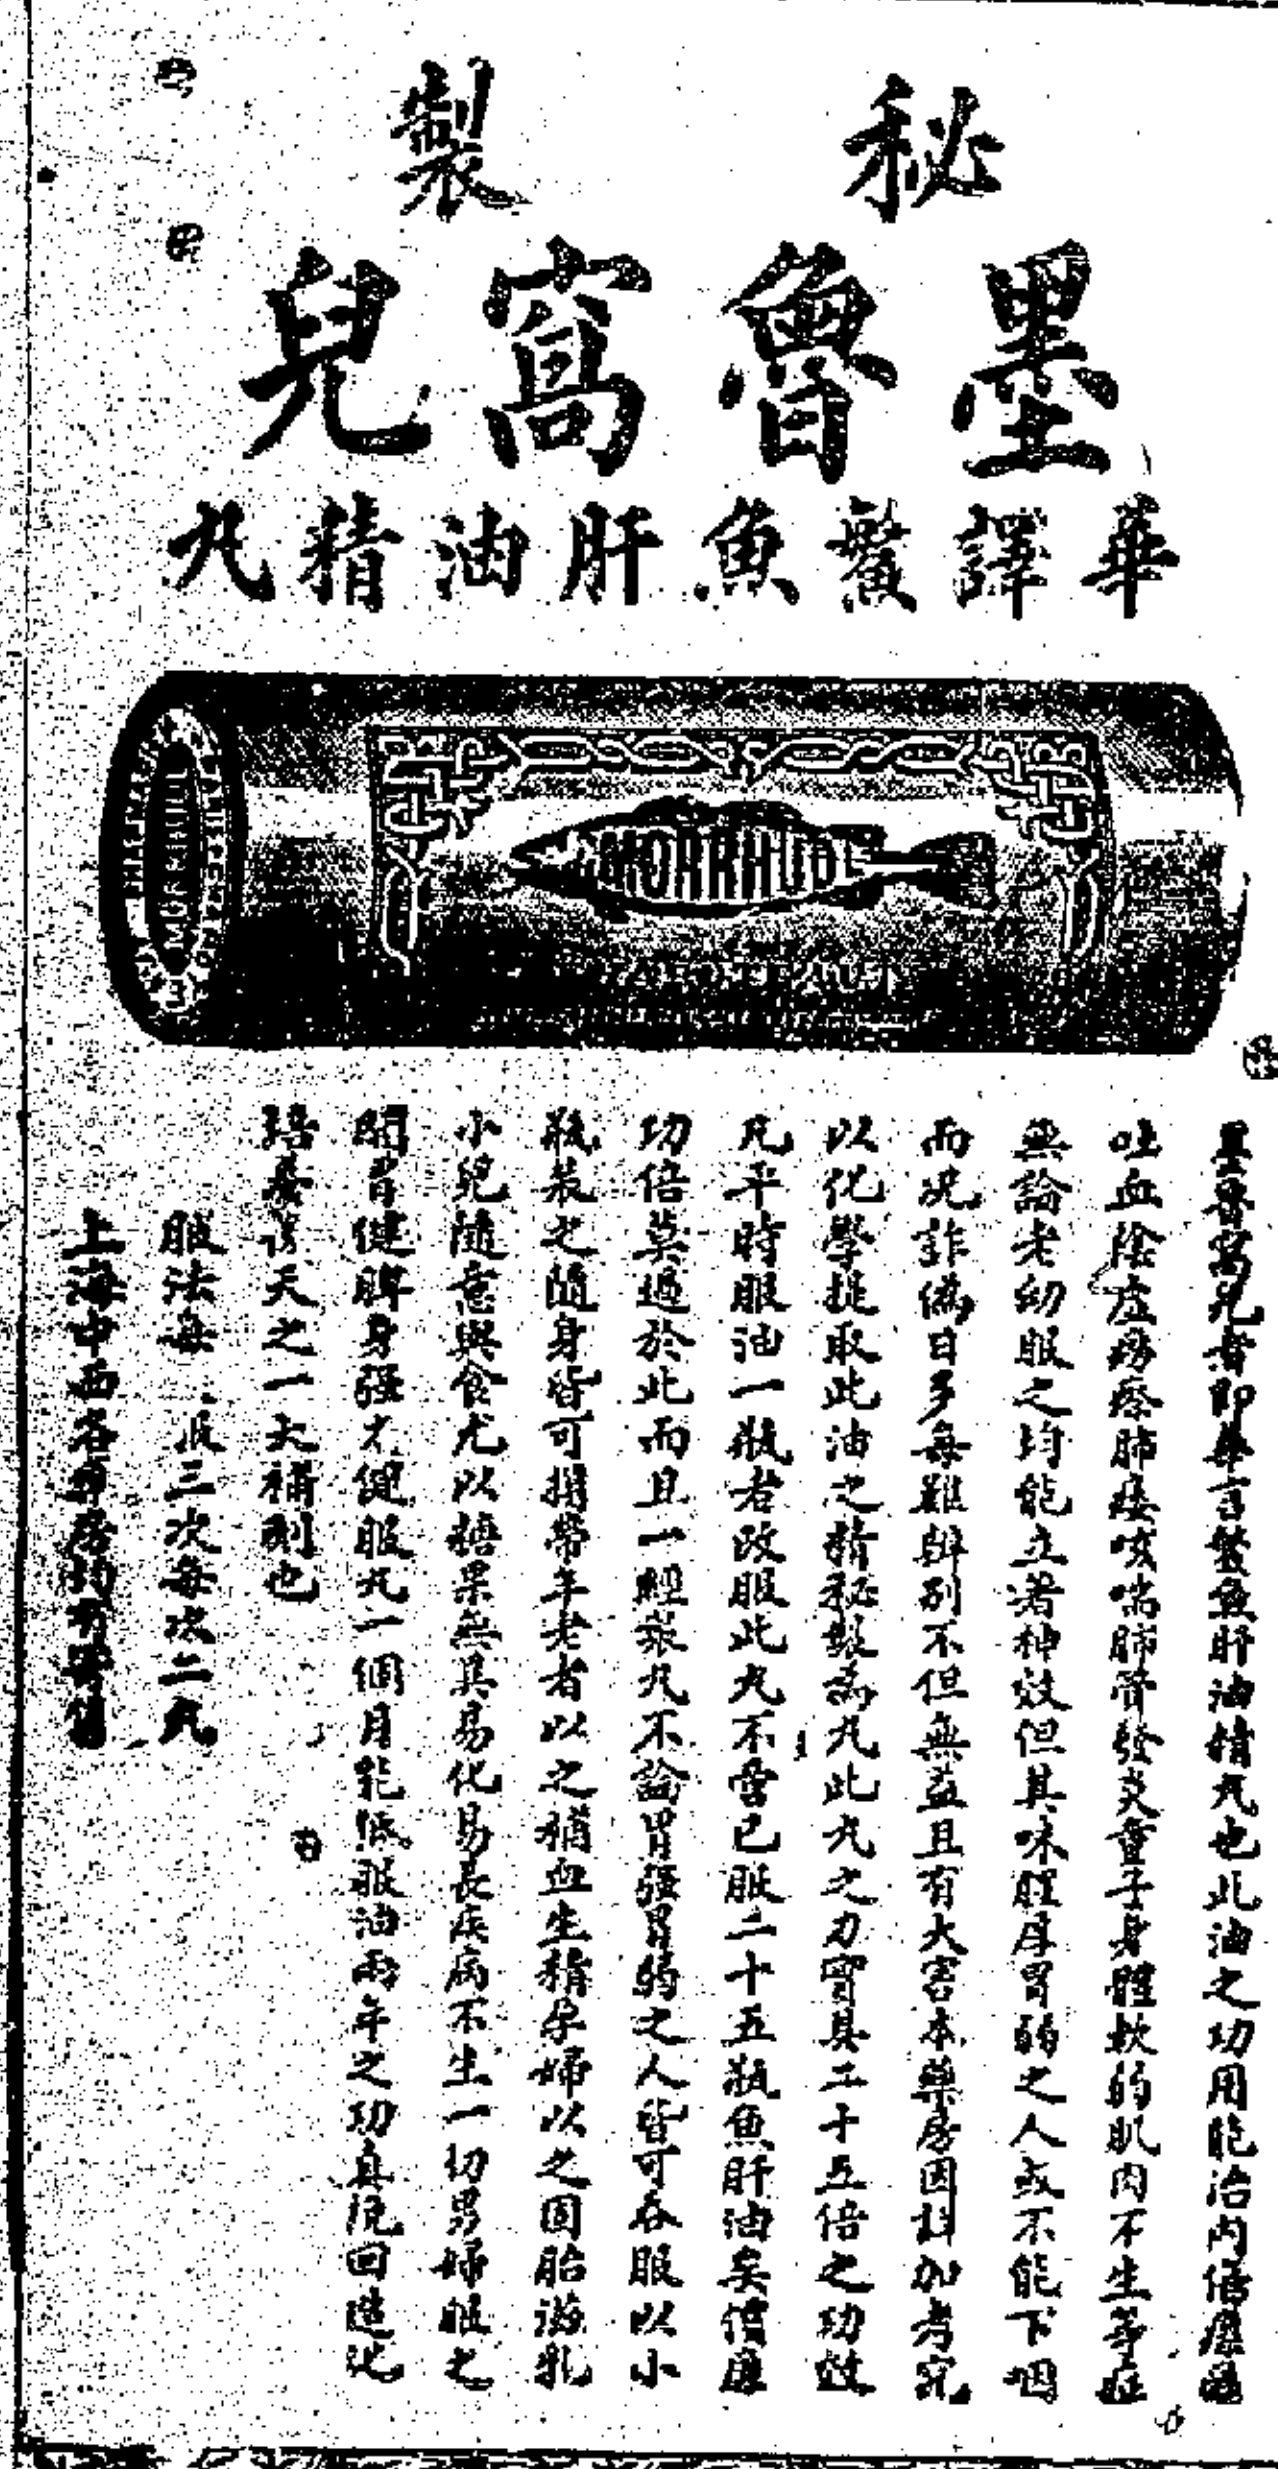 秘製
墨魯窩兒
華譯鱉魚肝油精丸
MORRHUOL
MORRHUOL
CHAPOTEAUT
墨魯窩兒者即華言鱉魚肝油精丸也此油之功用能治內傷
吐血陰虛癆瘵肺痿咳喘肺管發炎童子身體軟弱肌肉不生等症
無論老幼服之均能立著神效但其味腥厚胃弱之人或不能下咽
而況詐偽日多每難辨別不但無益且有大害本藥房因詳加考究
以化學提取此油之精秘製為丸此丸之力實具二十五倍之功效
凡平時服油一瓶者改服此丸不啻已服二十五瓶魚肝油矣價廉
功倍莫過於此而且一經裝丸不論胃強胃弱之人皆可吞服以小
瓶裝之隨身皆可攜帶年老者以之補血生精孕婦以之固胎滋乳
小兒隨意與食尤以糖果無異易化易長疾病不生一切男婦服之
開胃健脾身強才健服丸一個月能抵服油兩年之功真挽回造化
培養後天之一大補劑也
服法每 三次每次二丸
上海中西各藥房均有寄售